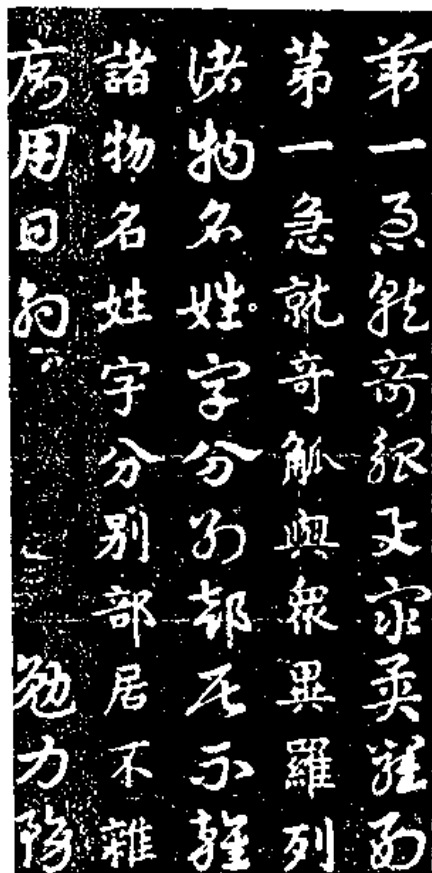 第一急就奇觚與衆異羅列
第一急就奇觚與衆異羅列
諸物名姓字分別部居不雜
諸物名姓字分別部居不雜
廁用日約勉力務